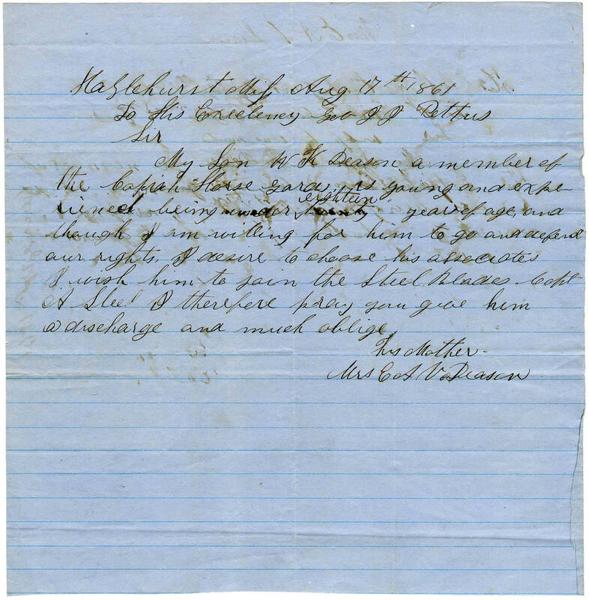 Hazlehurst Miss Aug 17th 1861
To His Excelency Gov J J Pettus
Sir
My Son W K Deason a member of
the Copiah Horse Gards is young and expe
rienced being under eighteen twenty years of age, and
though I am willing for him to go and defend
our rights, I desire to choose his associates
I wish him to join the Steel Blades Capt
A Steel I therefore pray you give him
a discharge and much oblige,
his Mother
Mrs E A V Deason